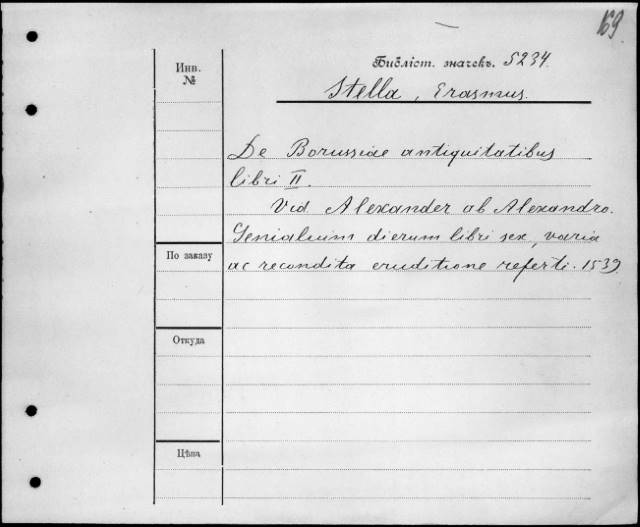 169.
Инв.
№
Библіот. значекъ. 5234.
Stella, Erasmus.
De Borussiae antiquitatibus
libri II.
Vid. Alexander ab Alexandro.
Genialium dierum libri sex, varia
ac recondita eruditione referti. 1539
По заказу
Откуда
Цѣна